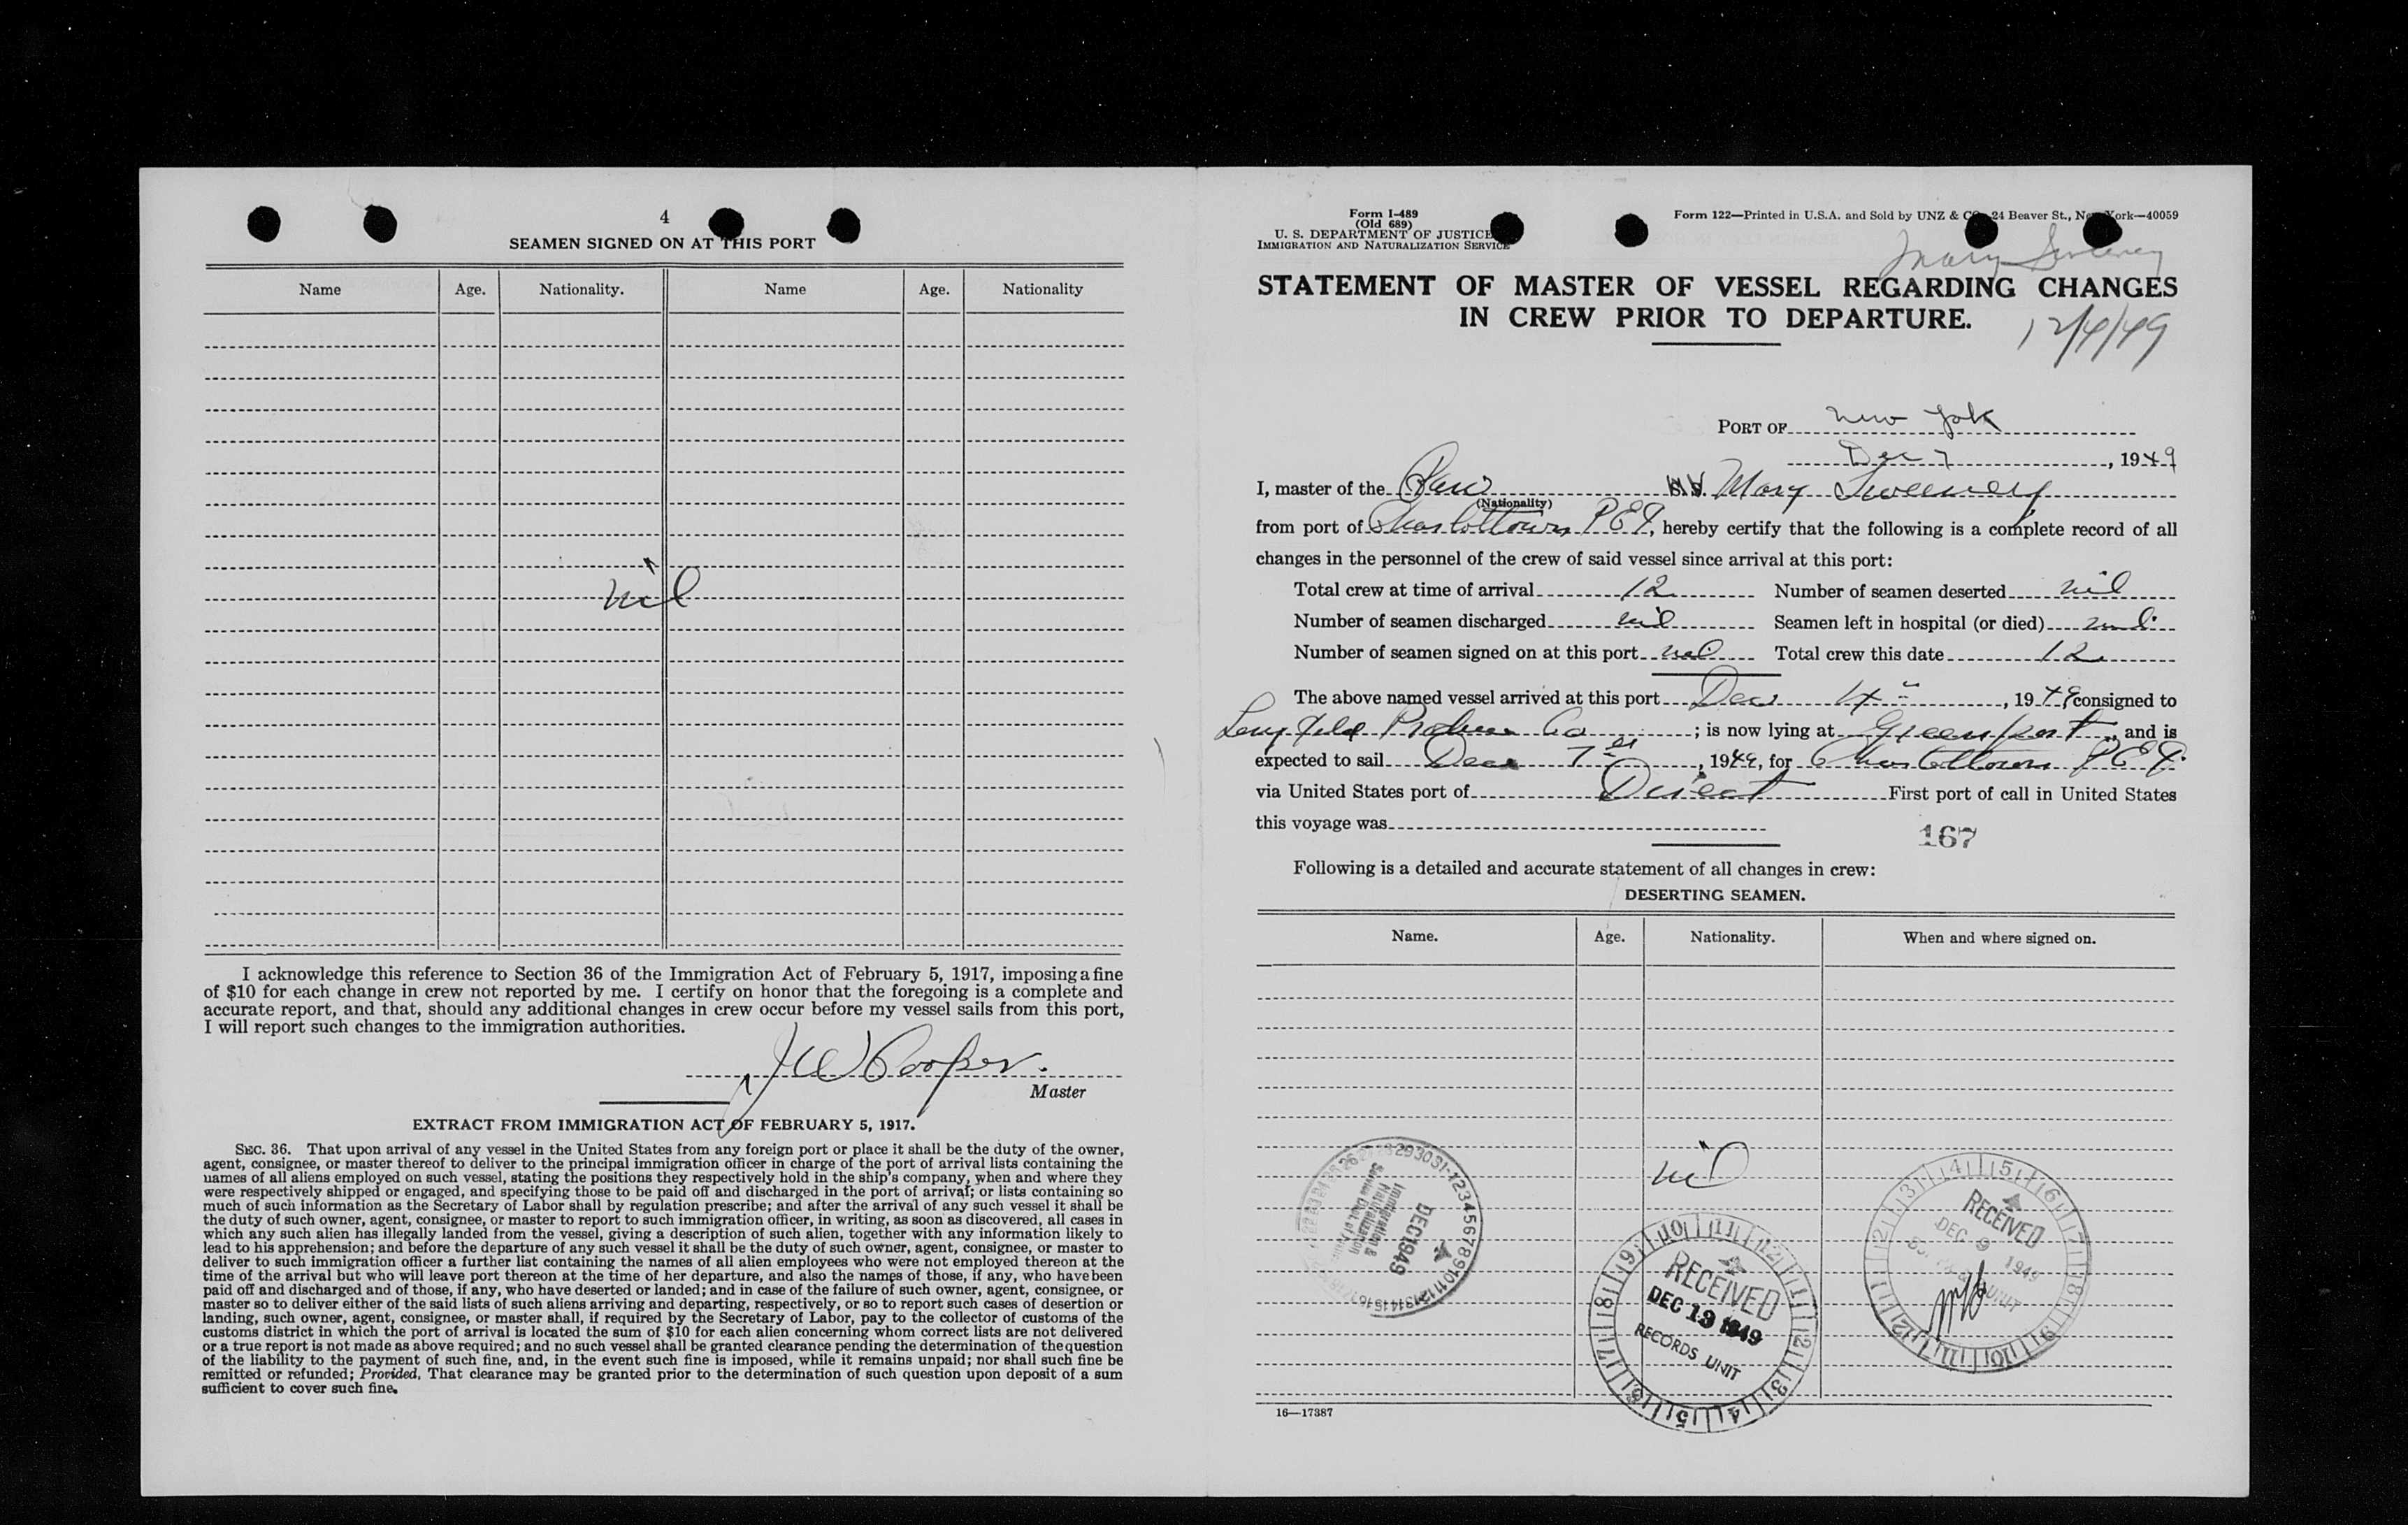 4
SEAMEN SIGNED ON AT THIS PORT
Name Age. Nationality. Name Age. Nationality
nil
I acknowledge this reference to Section 36 of the Immigration Act of February 5, 1917, imposing a fine
of $10 for each change in crew not reported by me. I certify on honor that the foregoing is a complete and
accurate report, and that, should any additional changes in crew occur before my vessel sails from this port,
I will report such changes to the immigration authorities.
JW Cooper.
Master
EXTRACT FROM IMMIGRATION ACT OF FEBRUARY 5, 1917.
SEC. 36. That upon arrival of any vessel in the United States from any foreign port or place it shall be the duty of the owner,
agent, consignee, or master thereof to deliver to the principal immigration officer in charge of the port of arrival lists containing the
names of all aliens employed on such vessel, stating the positions they respectively hold in the ship's company, when and where they
were respectively shipped or engaged, and specifying those to be paid off and discharged in the port of arrival; or lists containing so
much of such information as the Secretary of Labor shall by regulation prescribe; and after the arrival of any such vessel it shall be
the duty of such owner, agent, consignee, or master to report to such immigration officer, in writing, as soon as discovered, all cases in
which any such alien has illegally landed from the vessel, giving a description of such alien, together with any information likely to
lead to his apprehension; and before the departure of any such vessel it shall be the duty of such owner, agent, consignee, or master to
deliver to such immigration officer a further list containing the names of all alien employees who were not employed thereon at the
time of the arrival but who will leave port thereon at the time of her departure, and also the names of those, if any, who have been
paid off and discharged and of those, if any, who have deserted or landed; and in case of the failure of such owner, agent, consignee, or
master so to deliver either of the said lists of such aliens arriving and departing, respectively, or so to report such cases of desertion or
landing, such owner, agent, consignee, or master shall, if required by the Secretary of Labor, pay to the collector of customs of the
customs district in which the port of arrival is located the sum of $10 for each alien concerning whom correct lists are not delivered
or a true report is not made as above required; and no such vessel shall be granted clearance pending the determination of the question
of the liability to the payment of such fine, and, in the event such fine is imposed, while it remains unpaid; nor shall such fine be
remitted or refunded; Provided, That clearance may be granted prior to the determination of such question upon deposit of a sum
sufficient to cover such fine.
Form I-489
(Old 689)
U. S. DEPARTMENT OF JUSTICE
IMMIGRATION AND NATURALIZATION SERVICE
Form 122—Printed in U.S.A. and Sold by UNZ & CO., 24 Beaver St., New York—40059
Mary Sweeney
STATEMENT OF MASTER OF VESSEL REGARDING CHANGES
IN CREW PRIOR TO DEPARTURE.
12/4/49
PORT OF New York
Dec 7, 1949
I, master of the M.V. Mary Sweeney
(Nationality)
from port of Charlottown P.E.I., hereby certify that the following is a complete record of all
changes in the personnel of the crew of said vessel since arrival at this port:
Total crew at time of arrival 12 Number of seamen deserted nil
Number of seamen discharged nil Seamen left in hospital (or died) nil
Number of seamen signed on at this port nil Total crew this date 12
The above named vessel arrived at this port Dec 4th, 1949 consigned to
Produce Co; is now lying at Greenport, and is
expected to sail Dec 7, 1949, for Charlottown P.E.I.
via United States port of Direct First port of call in United States
this voyage was
167
Following is a detailed and accurate statement of all changes in crew:
DESERTING SEAMEN.
Name. Age. Nationality. When and where signed on.
nil
DEC 1949
Immigration &
Naturalization
RECEIVED
DEC 13 1949
RECORDS UNIT
RECEIVED
DEC 9 1949
UNIT
16—17387